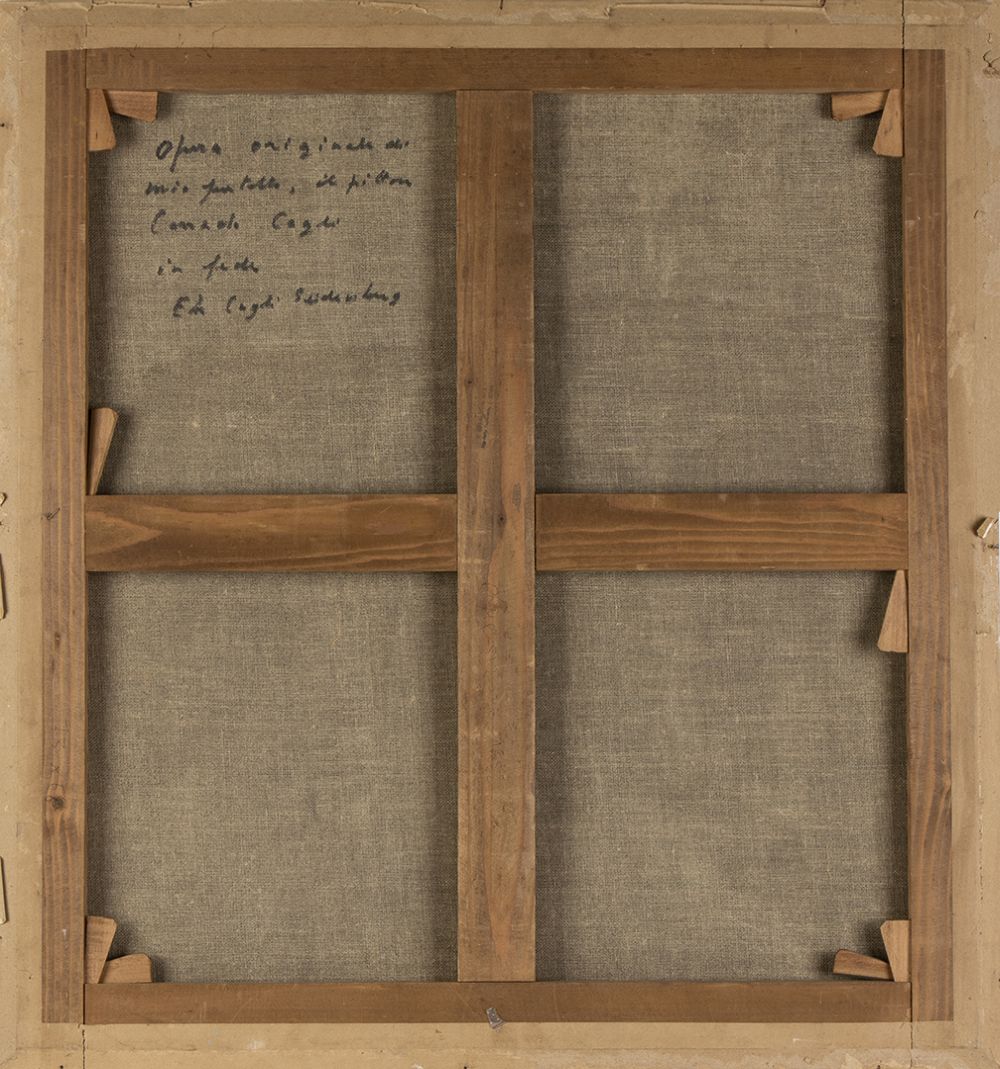 Opera originale di
mio fratello, il pittore
Corrado Cagli
in fede
Ela Cagli Seidenberg